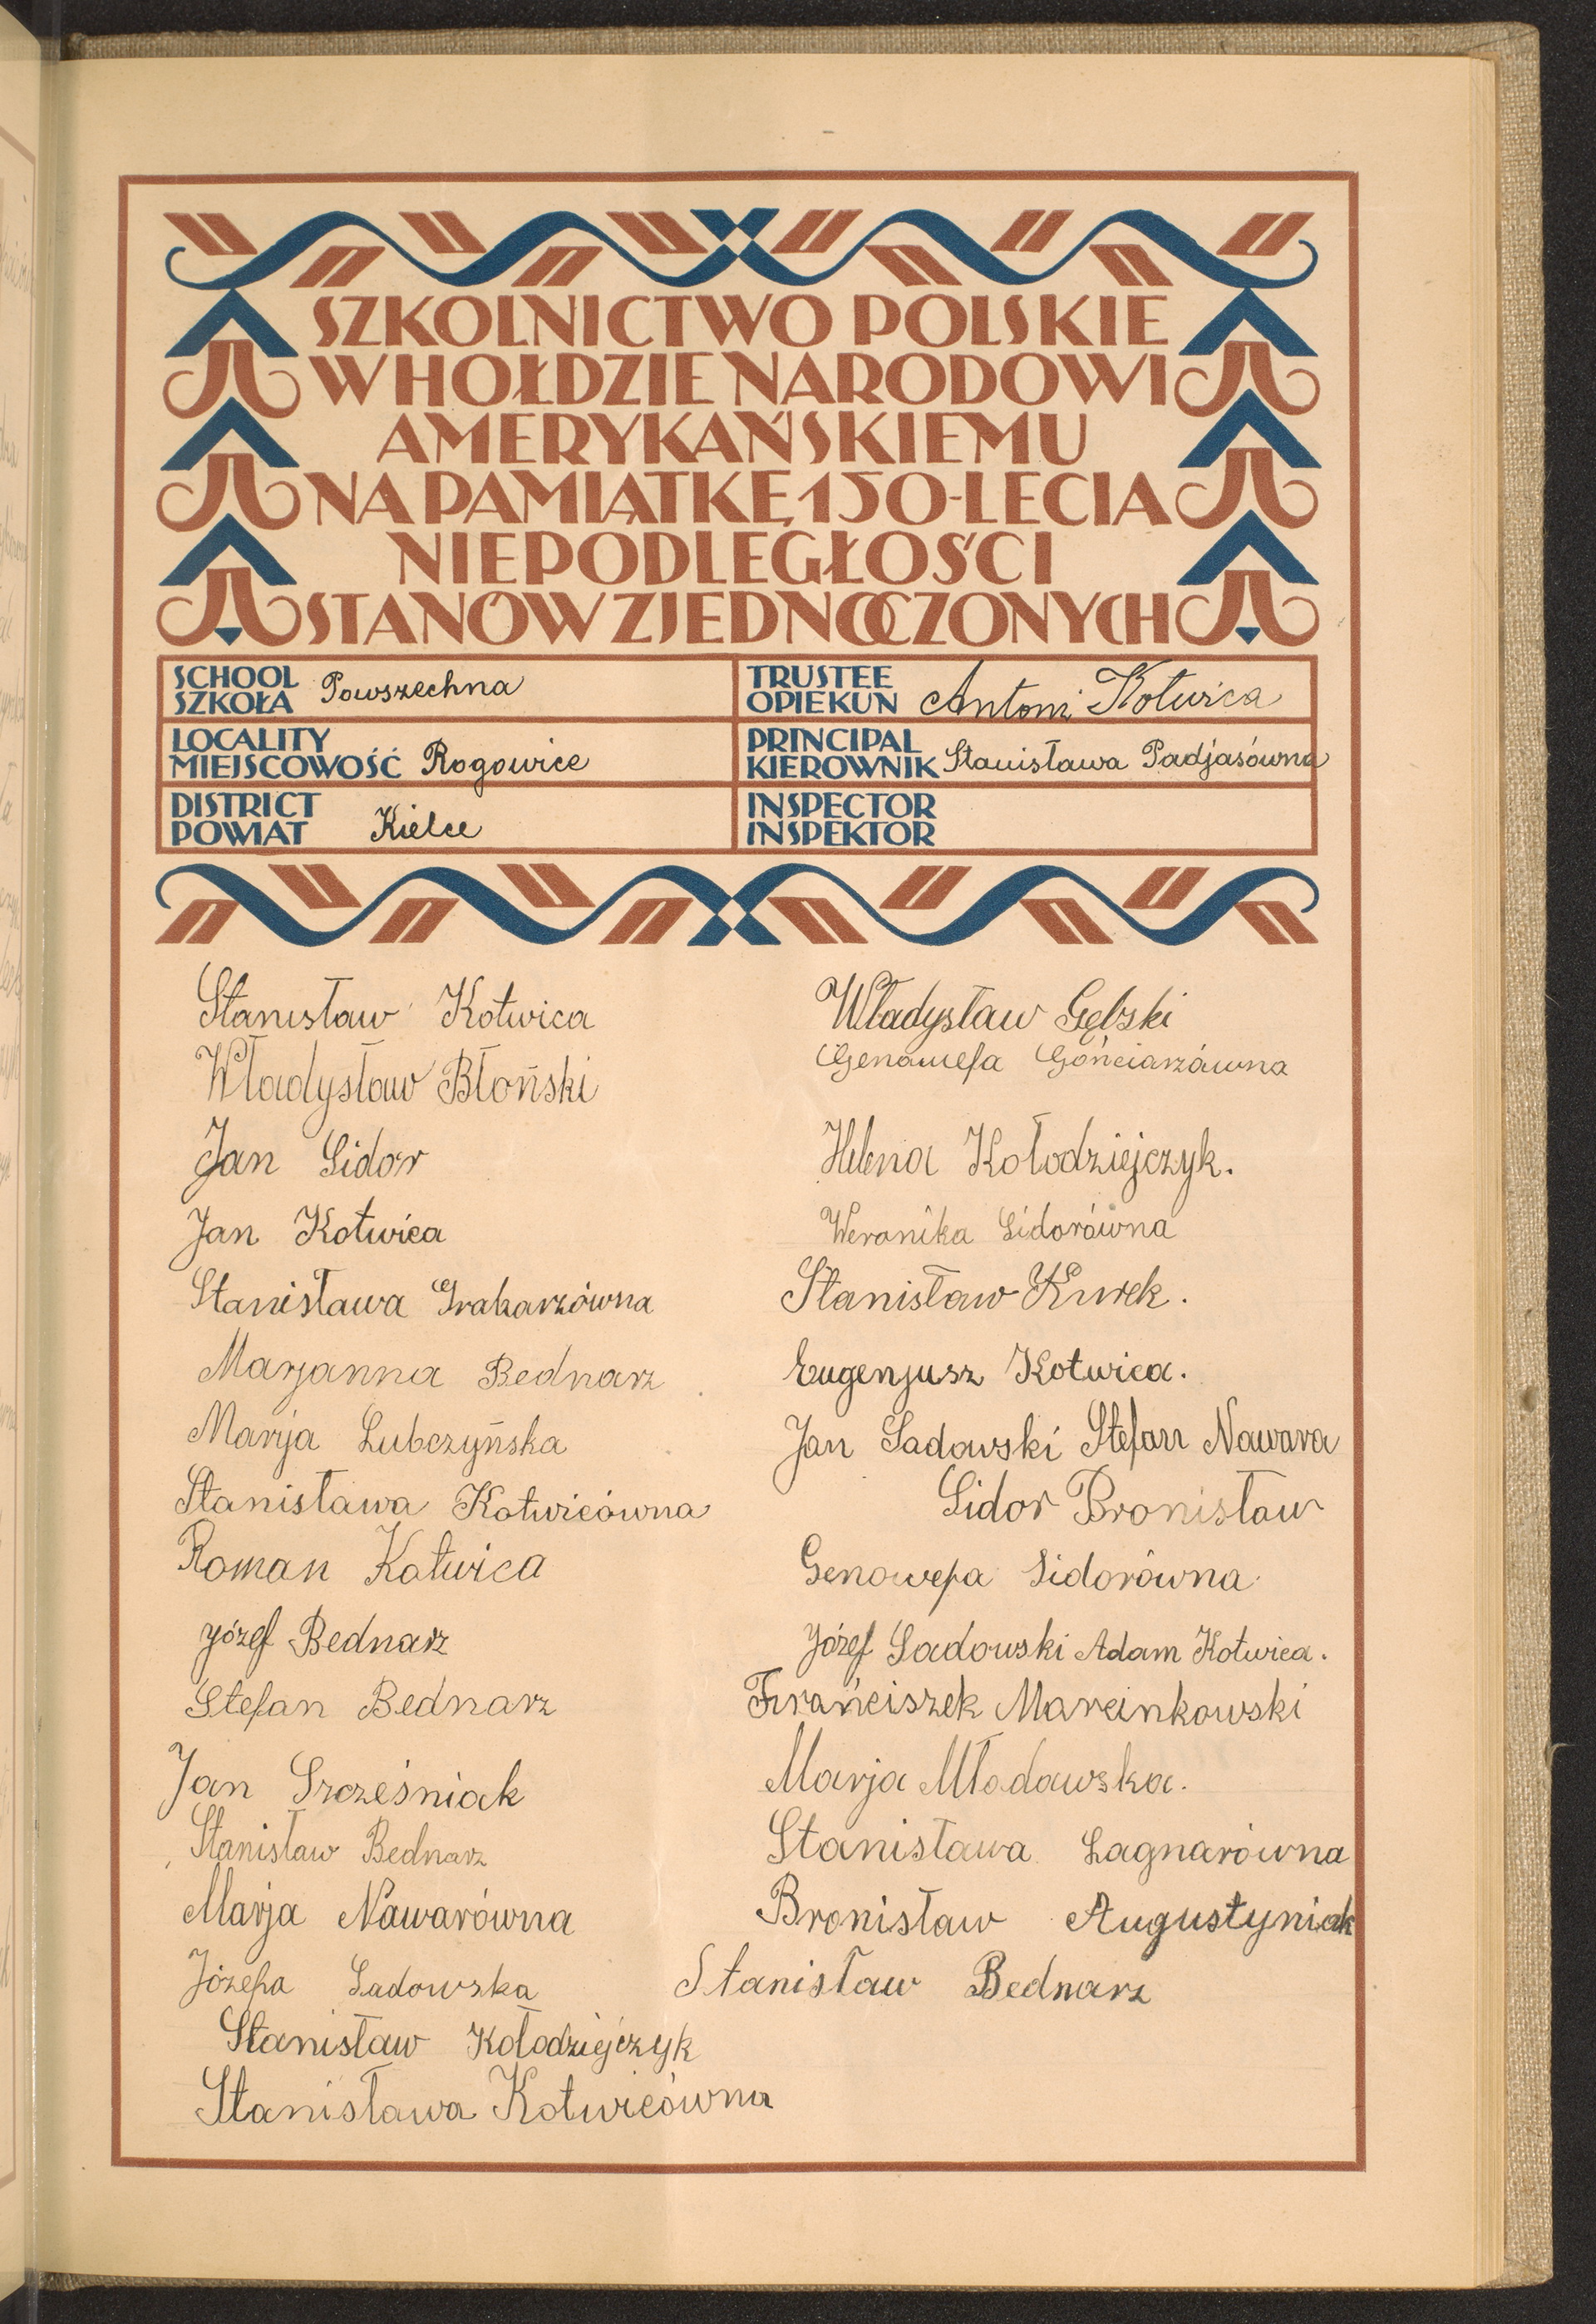 SZKOLNICTWO POLSKIE
W HOŁDZIE NARODOWI
AMERYKAŃSKIEMU
NA PAMIĄTKĘ 150-LECIA
NIEPODLEGŁOŚCI
STANÓW ZJEDNOCZONYCH
SCHOOL
SZKOŁA Powszechna
TRUSTEE
OPIEKUN Antoni Kotwica
LOCALITY
MIEJSCOWOŚĆ Rogowice
PRINCIPAL
KIEROWNIK Stanisława Padjasówna
DISTRICT
POWIAT Kielce
INSPECTOR
INSPEKTOR
Stanisław Kotwica
Władysław Błoński
Jan Sidor
Jan Kotwica
Stanisława Grakarzówna
Marjanna Bednarz
Marja Lubczyńska
Stanisława Kotwicówna
Roman Kotwica
Józef Bednarz
Stefan Bednarz
Jan Szcześniak
Stanisław Bednarz
Marja Nawarówna
Józefa Sadowska
Stanisław Kołodziejczyk
Stanisława Kotwicówna
Władysław Gębski
Genowefa Gońciarzówna
Helena Kołodziejczyk.
Weronika Sidorówna
Stanisław Kurek.
Eugenjusz Kotwica.
Jan Sadowski Stefan Nawara
Sidor Bronisław
Genowefa Sidorówna
Józef Sadowski Adam Kotwica.
Frańciszek Marcinkowski
Marja Młodawska.
Stanisława Łagnarówna
Bronisław Augustyniak
Stanisław Bednarz